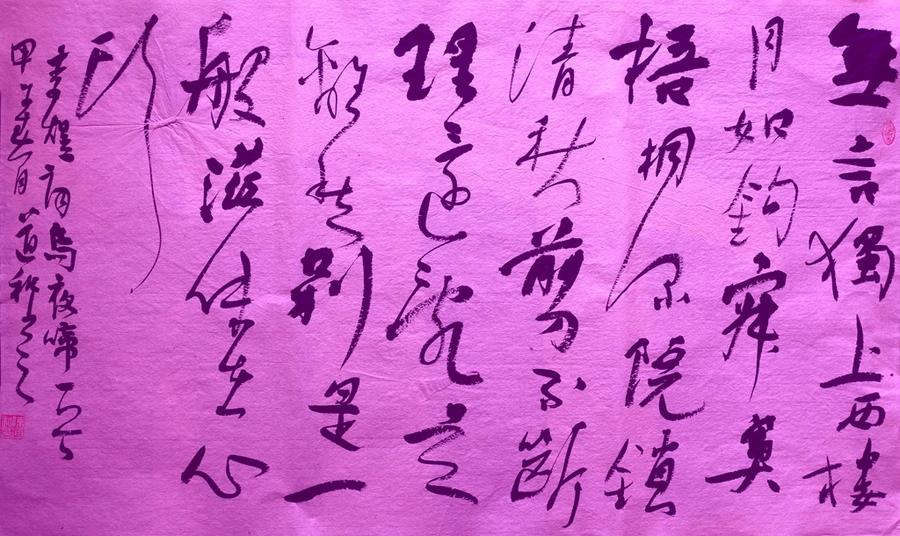 無言獨上西樓
月如鈎寂寞
梧桐深院鎖
清秋剪不斷
理還亂是
離愁別是一
般滋味在心
頭
李煜詞烏夜啼一首
甲午春月道